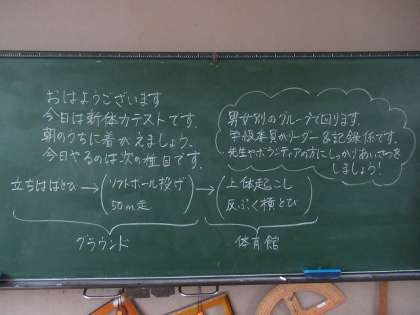 おはようございます
今日は新体力テストです。
朝のうちに着がえましょう。
今日やるのは次の種目です。
立ちはばとび→(ソフトボール投げ
50m走)→(上体起こし
反ぷく横とび)
グラウンド
体育館
男女別のグループで回ります。
学級委員がリーダー&記録係です。
先生やボランティアの方にしっかりあいさつを
しましょう!